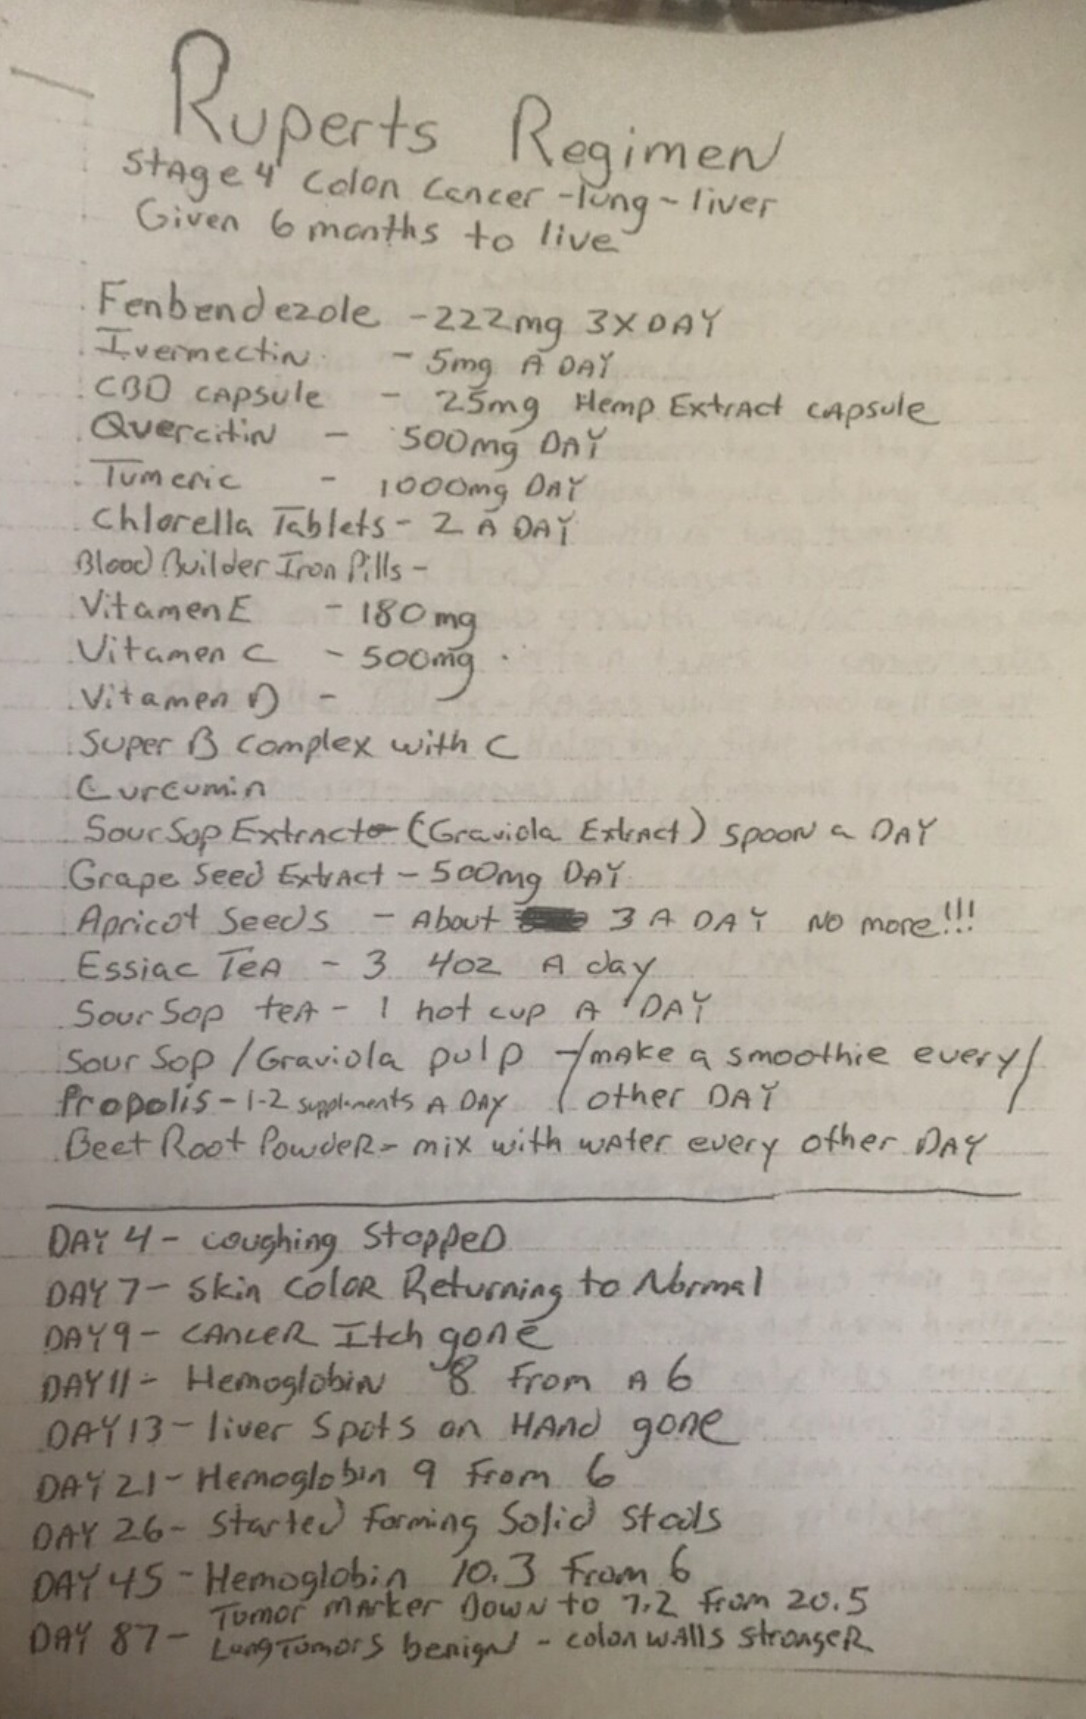 Ruperts Regimen
Stage 4 Colon Cancer - lung - liver
Given 6 months to live
Fenbendezole - 222mg 3X DAY
Ivermectin - 5mg A DAY
CBD CAPSULE - 25mg Hemp Extract CAPSULE
Quercitin - 500mg DAY
Tumeric - 1000mg DAY
Chlorella Tablets - 2 A DAY
Blood Builder Iron Pills -
Vitamen E - 180mg
Vitamen C - 500mg
Vitamen D -
Super B complex with C
Curcumin
Sour Sop Extract - (Graviola Extract) spoon a DAY
Grape Seed Extract - 500mg DAY
Apricot Seeds - About 3 A DAY NO more!!!
Essiac TeA - 3 4oz A day
Sour Sop teA - 1 hot cup A DAY
Sour Sop / Graviola pulp - / make a smoothie every /
Propolis - 1-2 supplements A DAY ( other DAY
Beet Root Powder - mix with water every other DAY
DAY 4 - Coughing Stopped
DAY 7 - Skin Color Returning to Normal
DAY 9 - CANCER Itch gone
DAY 11 - Hemoglobin 8 From A 6
DAY 13 - liver Spots on HAnd gone
DAY 21 - Hemoglobin 9 From 6
DAY 26 - Started Forming Solid Stools
DAY 45 - Hemoglobin 10.3 From 6
Tumor Marker Down to 7.2 from 20.5
DAY 87 - Lung Tumors benign - colon walls stronger